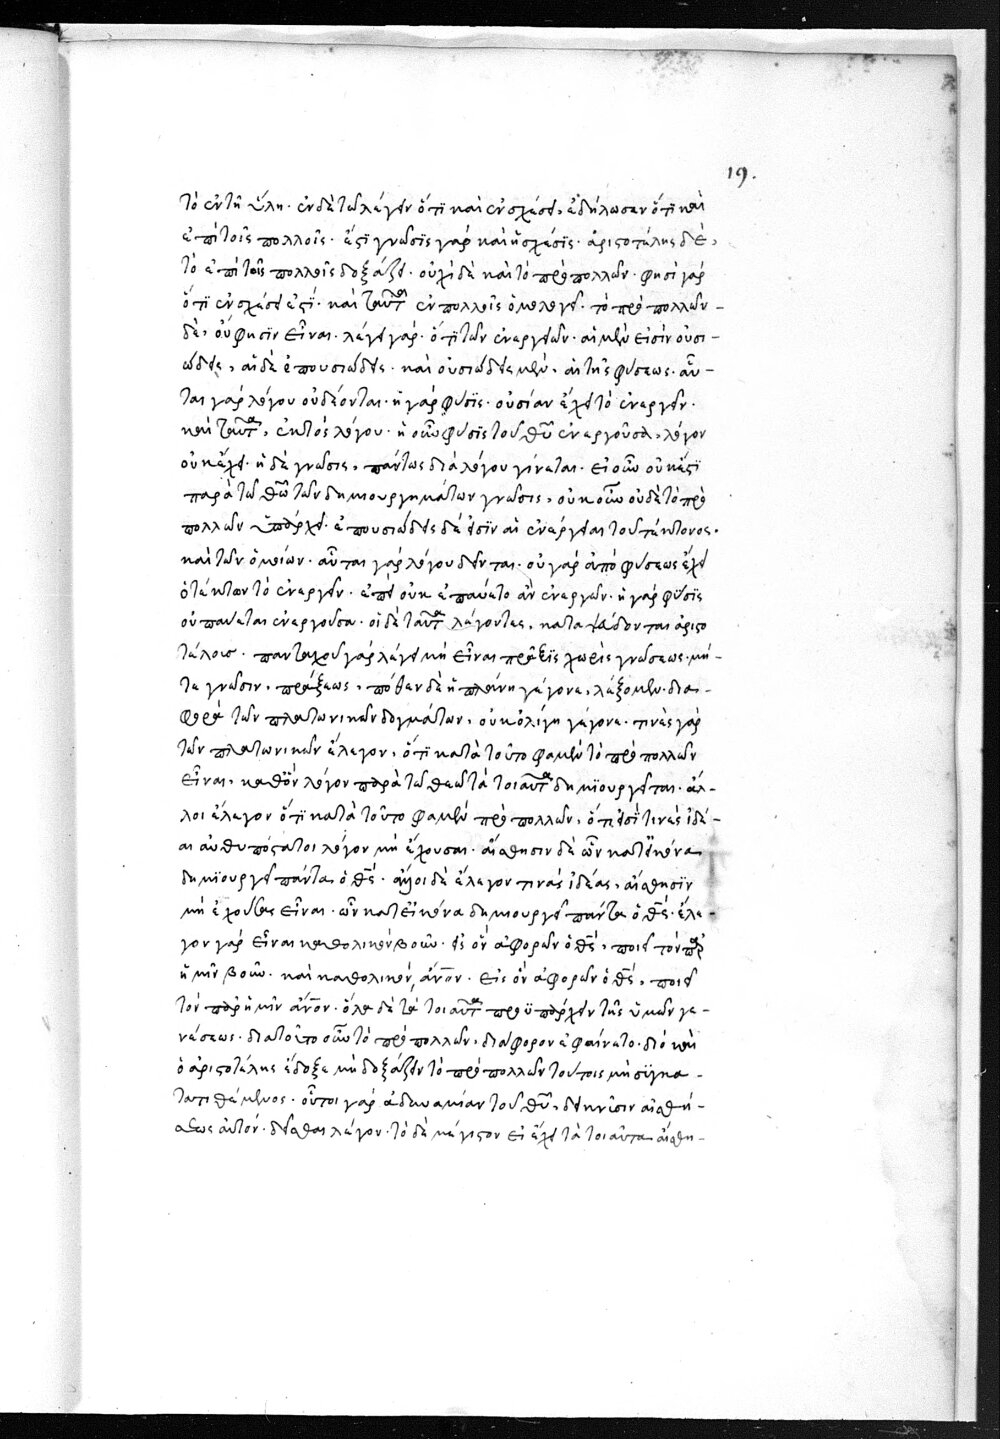 19.
τὸ ἐν τῆ ὕλη· ἐν δὲ τῶ λέγειν ὅτι καὶ ἐν σχέσει, ἐδήλωσαν ὅτι καὶ
ἐπὶ τοῖς πολλοῖς· ἔστι γνῶσις γὰρ καὶ ἡ σχέσις· ἀριστοτέλης δὲ,
τὸ ἐπὶ τοῖς πολλοῖς δοξάζει· οὐχὶ δὲ καὶ τὸ πρὸ πολλῶν· φησὶ γὰρ
ὅτι ἐν σχέσει ἐστί· καὶ ταῦτα ἐν πολλοῖς ὁμολογεῖ· τὸ πρὸ πολλῶν
δὲ, οὔ φησιν εἶναι· λέγει γὰρ· ὅτι τῶν ἐνεργειῶν· αἱ μὲν εἰσὶν οὐσι-
ώδεις, αἱ δὲ ἐπουσιώδεις· καὶ οὐσιώδεις μὲν, αἱ τῆς φύσεως· αὗ-
ται γὰρ λόγου οὐ δέονται· ἡ γὰρ φύσις· οὐσίαν ἔχει τὸ ἐνεργεῖν·
καὶ ταῦτα, ἐκτὸς λόγου· ἡ οὖν φύσις τοῦ θεοῦ ἐνεργοῦσα, λόγον
οὐκ ἔχει· ἡ δὲ γνῶσις, πάντως διὰ λόγου γίνεται· εἰ οὖν οὐκ ἔστι
παρὰ τῶ θεῶ τῶν δημιουργημάτων γνῶσις, οὐκ οὖν οὐδὲ τὸ πρὸ
πολλῶν ὑπάρχει· ἐπουσιώδεις δέ εἰσιν αἱ ἐνέργειαι τοῦ τέκτονος·
καὶ τῶν ὁμοίων· αὗται γὰρ λόγου δέονται· οὐ γὰρ ἀπὸ φύσεως ἔχει
ὁ τέκτων τὸ ἐνεργεῖν· ἐπεὶ οὐκ ἐπαύετο ἂν ἐνεργῶν· ἡ γὰρ φύσις
οὐ παύεται ἐνεργοῦσα· οἱ δὲ ταῦτα λέγοντες, καταψεύδονται ἀριστο
τέλους· πανταχοῦ γὰρ λέγει μὴ εἶναι πρᾶξις χωρὶς γνώσεως· μή-
τε γνῶσιν, πράξεως, πόθεν δὲ ἡ πλάνη γέγονε, λέξομεν· δια-
φορὰ τῶν πλατωνικῶν δογμάτων, οὐκ ὀλίγη γέγονε· τινὲς γὰρ
τῶν πλατωνικῶν ἔλεγον, ὅτι κατὰ τοῦτο φαμὲν τὸ πρὸ πολλῶν
εἶναι, καθ' ὃν λόγον παρὰ τῶ θεῶ τὰ τοιαῦτα δημιουργεῖται· ἄλ-
λοι ἔλεγον ὅτι κατὰ τοῦτο φαμὲν πρὸ πολλῶν, ὅτι εἰσί τινες ἰδέ-
αι αὐθυπόστατοι λόγον μὴ ἔχουσαι· αἴσθησιν δὲ ὧν κατ' εἰκόνα
δημιουργεῖ πάντα ὁ θεός· ἄλλοι δὲ ἔλεγον τινὰς ἰδέας, αἴσθησιν
μὴ ἐχούσας εἶναι· ὧν κατ' εἰκόνα δημιουργεῖ πάντα ὁ θεός· ἔλε-
γον γὰρ εἶναι καθολικὸν βοῦν· εἰς ὃν ἀφορῶν ὁ θεὸς, ποιεῖ τὸν παρ'
ἡμῖν βοῦν· καὶ καθολικὸν, ἄνθρωπον· εἰς ὃν ἀφορῶν ὁ θεὸς, ποιεῖ
τὸν παρ' ἡμῖν ἄνθρωπον· ὅλα δὲ τὰ τοιαῦτα προϋπάρχειν τῆς ἡμῶν γε-
νέσεως· διὰ τοῦτο οὖν τὸ πρὸ πολλῶν, διάφορον ἐφαίνετο· διὸ καὶ
ὁ ἀριστοτέλης ἔδοξε μὴ δοξάζειν τὸ πρὸ πολλῶν τούτοις μὴ συγκα-
τατιθέμενος· οὗτοι γὰρ ἀδυναμίαν τοῦ θεοῦ, δεικνῦσιν αἰσθή-
σεως αὐτὸν· δεῖσθαι λέγον· τὸ δὲ μέγιστον εἰ ἔχει τὰ τοιαῦτα αἴσθη-